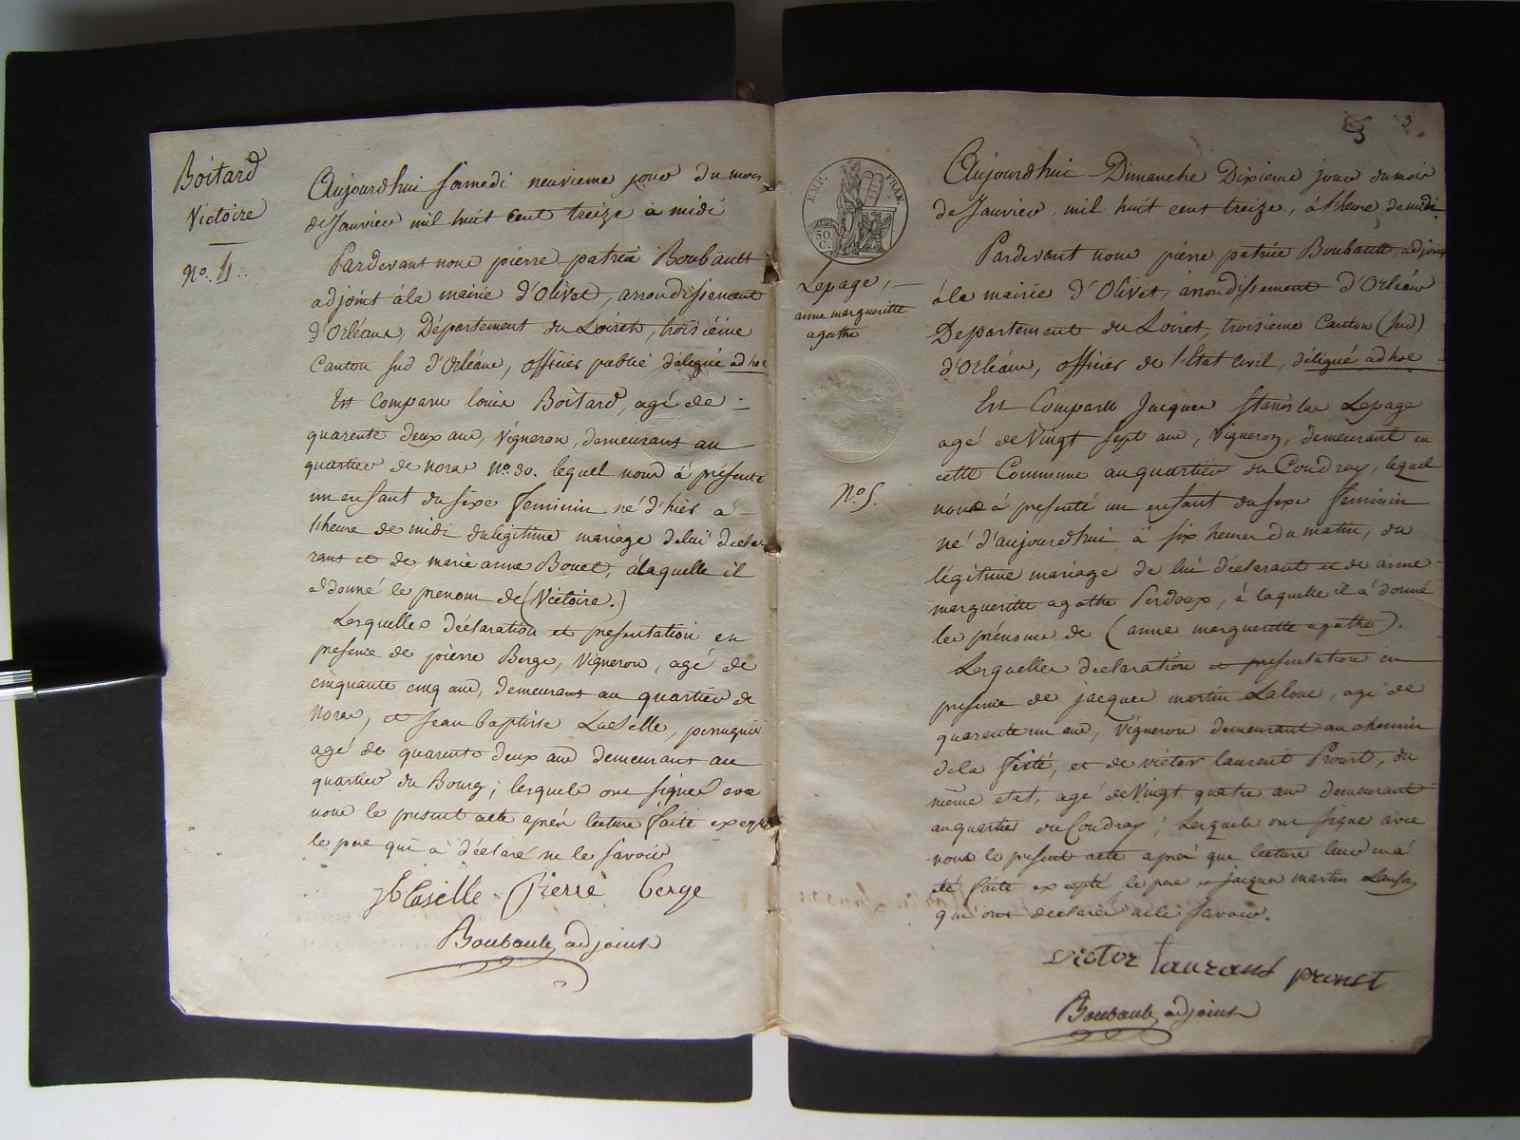 Boitard
Victoire
No. 4.
Aujourdhui Samedi neuvieme jour du mois
de Janvier mil huit cent treize à midi
Pardevant nous pierre patrice Boubault
adjoint à la mairie d'Olivet, arrondissement
d'Orléans, Département du Loiret, troisiéme
Canton sud d'Orléans, officier public délégué ad hoc
Est Comparu louis Boitard, agé de
quarente deux ans, vigneron, demeurant au
quartier de noras No. 30. lequel nous à présenté
un enfant du sexe feminin né d'hier à
1 heure de midi du légitime mariage de lui décla
rant et de marie anne Bouet, à laquelle il
a donné le prenom de (Victoire.)
Lesquelles déclaration et presentation en
presence de pierre Berge, vigneron, agé de
cinquante cinq ans, demeurant au quartier de
noras, et Jean baptiste Laselle, perruquier
agé de quarente deux ans demeurant au
quartier du Bourg; lesquels ont signé avec
nous le present acte après lecture faite excepté
le pere qui a déclaré ne le savoir
JB Laselle Pierre berge
Boubault adjoint
5 3
EMP. FRAN.
50 C.
Lepage,
anne margueritte
agathe
No. 5.
Aujourdhui Dimanche Dixieme jour du mois
de Janvier mil huit cent treize, à 1 heure de midi
Pardevant nous pierre patrice Boubault adjoint
à la mairie d'Olivet, arrondissement d'Orléans
Departement du Loiret, troisieme Canton (sud)
d'Orléans, officier de l'Etat Civil, délégué ad hoc
Est Comparu Jacques stanislas Lepage
agé de vingt sept ans, vigneron, demeurant en
cette Commune au quartier du Coudray, lequel
nous à présenté un enfant du sexe feminin
né d'aujourdhui à six heures du matin, du
légitime mariage de lui déclarant et de anne
margueritte agathe Perdoux, à laquelle il a donné
les prénoms de (anne margueritte agathe).
Lesquelles déclaration et presentation en
presence de jacques martin Laloue, agé de
quarente un ans, vigneron demeurant au chemin
de la ferté, et de victor laurent Proust, du
même etat, agé de vingt quatre ans demeurant
au quartier du Coudray; Lesquels ont signé avec
nous le present acte après que lecture leur en a
été faite excepté le pere et jacques martin
qui ont declarés ne le savoir.
victor laurant proust
Boubault adjoint